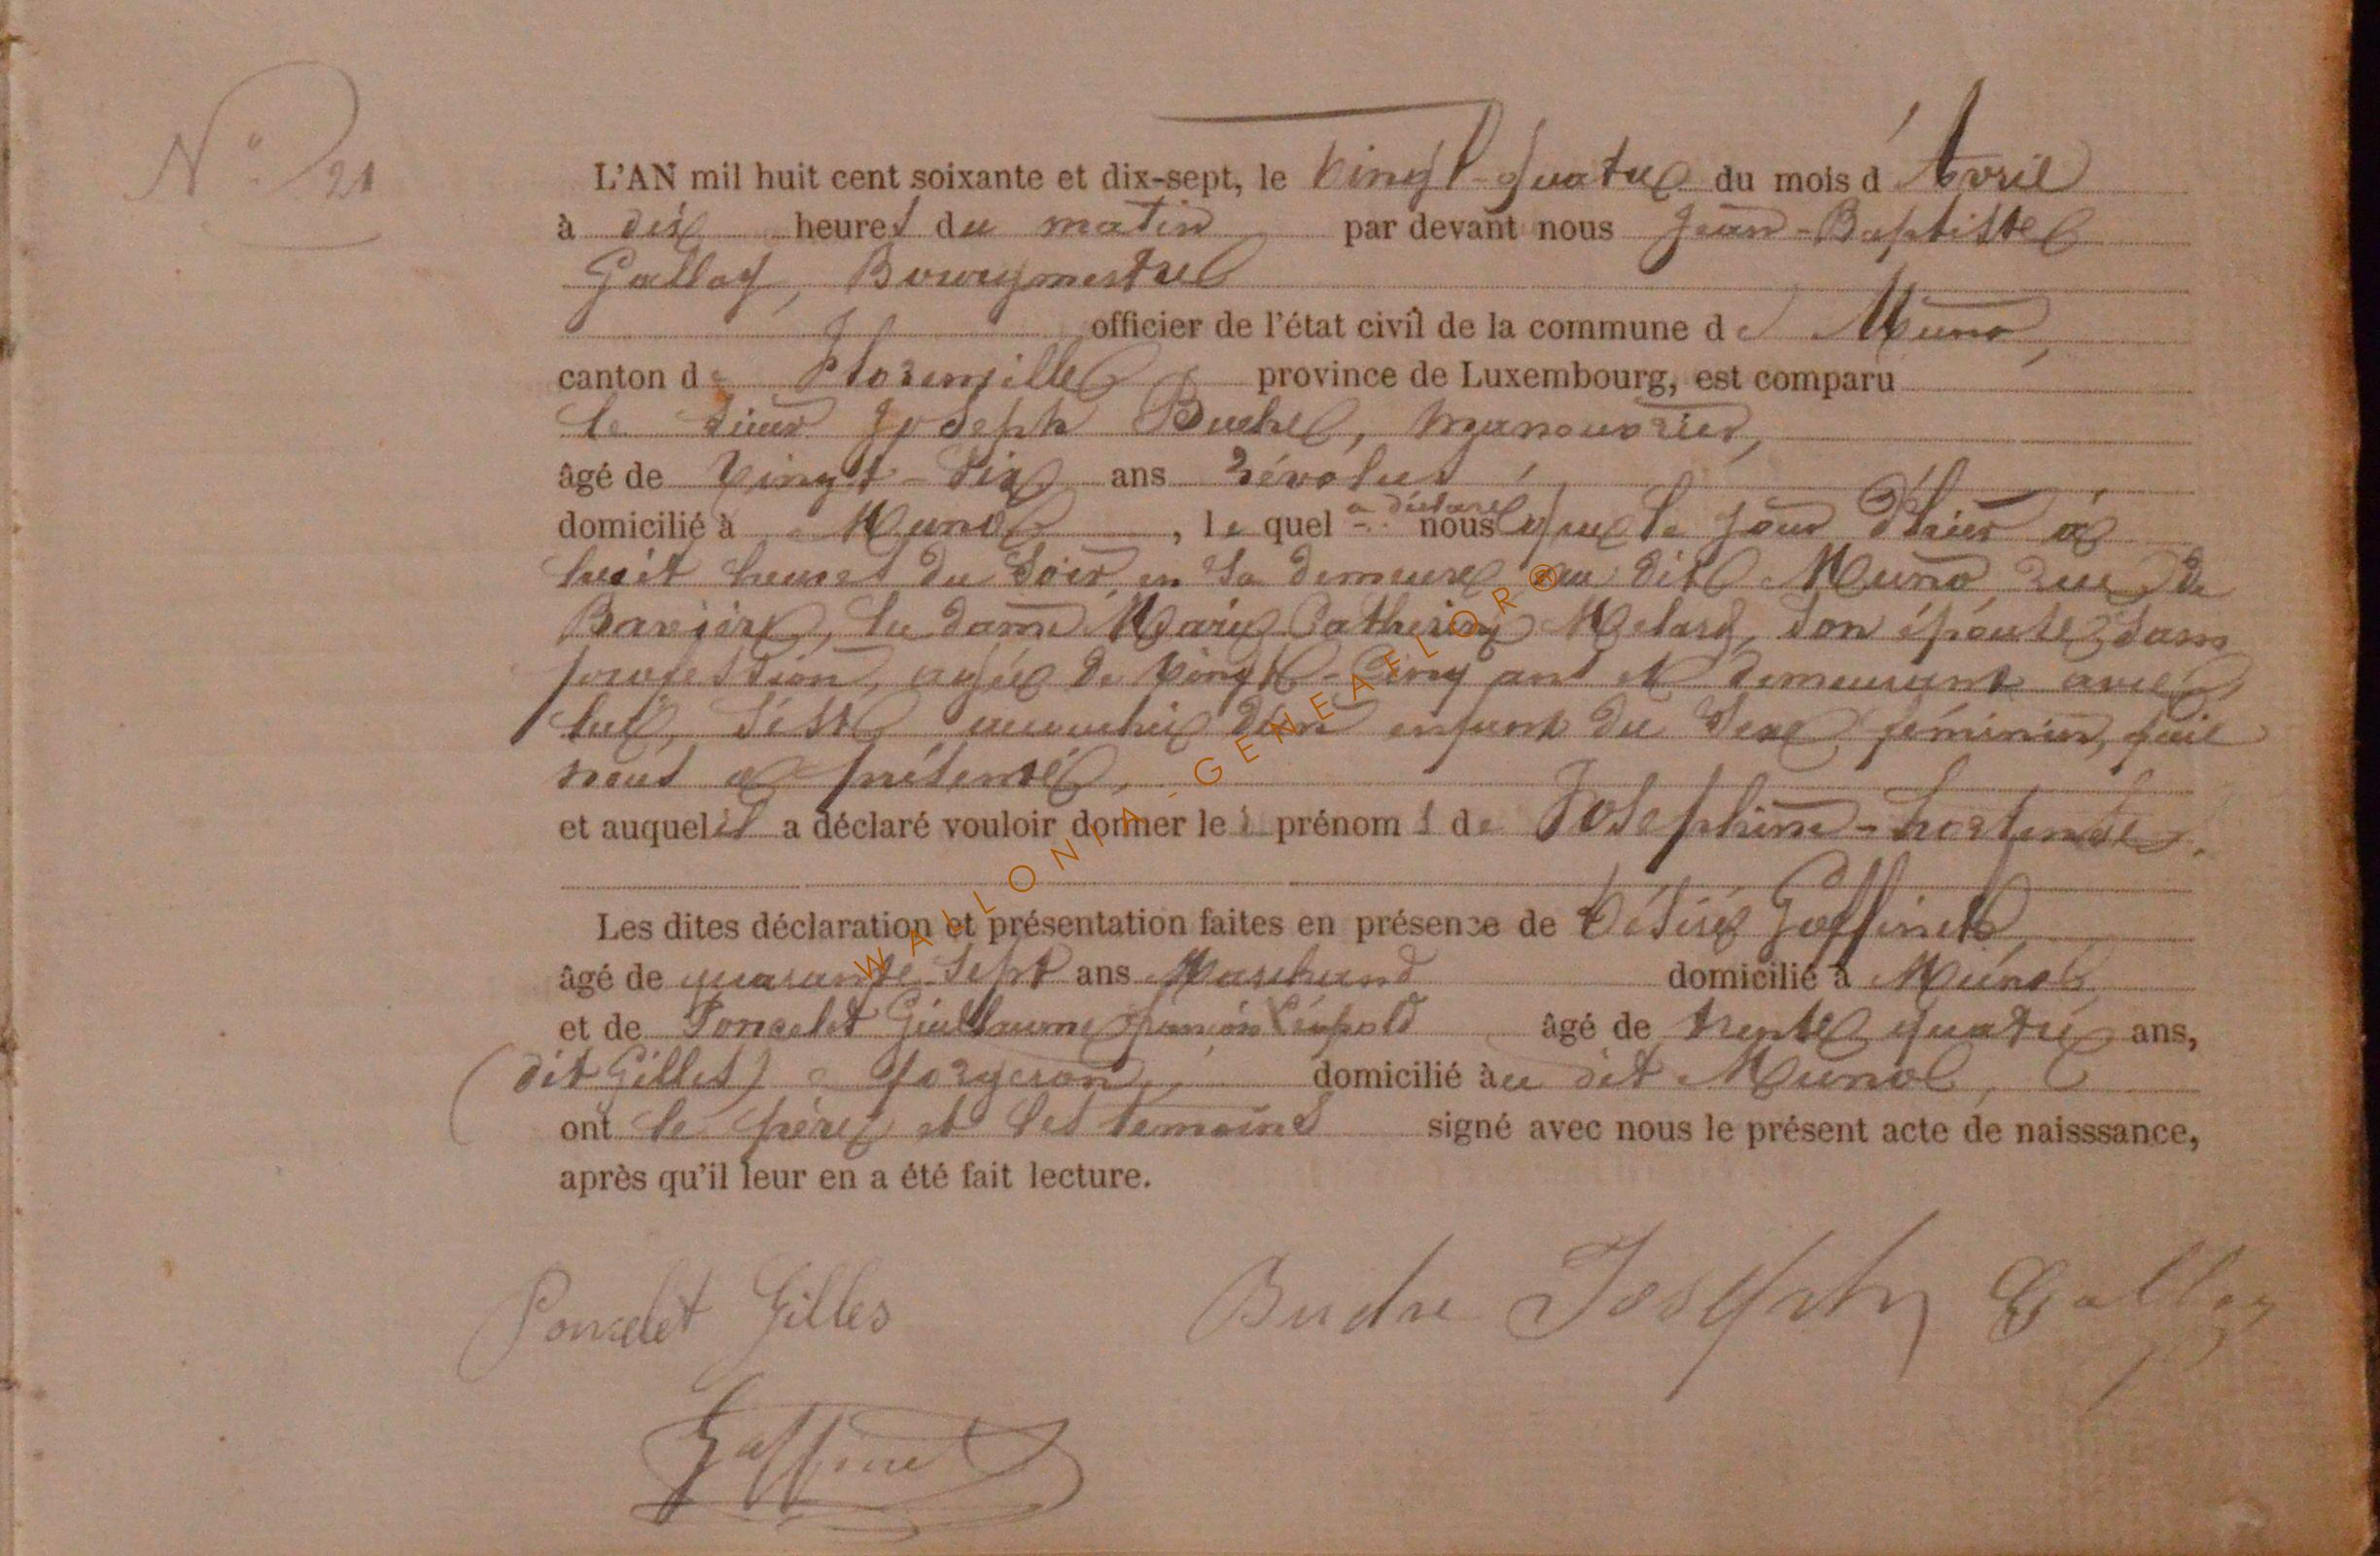 N° 21
L'AN mil huit cent soixante et dix-sept, le vingt-quatre du mois d'Avril
à dix heures du matin par devant nous Jean-Baptiste
Galloy, Bourgmestre
officier de l'état civil de la commune de Muno,
canton de Florenville province de Luxembourg, est comparu
le sieur Joseph Buche, manouvrier,
âgé de vingt-six ans révolus,
domicilié à Muno, lequel a déclaré nous que le jour d'hier à
huit heures du soir, en sa demeure au dit Muno rue de
Bavière, la dame Marie Catherine Melard, son épouse, sans
profession, agée de vingt-cinq ans et demeurant avec
lui, s'est accouchée d'un enfant du sexe féminin, qu'il
nous a présenté,
et auquel il a déclaré vouloir donner les prénoms de Josephine-hortense.
Les dites déclaration et présentation faites en présence de Désiré Goffinet
âgé de quarante-sept ans Marchand domicilié à Muno
et de Poncelet Guillaume Léopold âgé de trente quatre ans,
(dit Gilles) forgeron, domicilié au dit Muno,
ont le père et les temoins signé avec nous le présent acte de naisssance,
après qu'il leur en a été fait lecture.
Poncelet Gilles Buche Joseph Galloy
Goffinet
WALLONIA-GENEAFLOR®